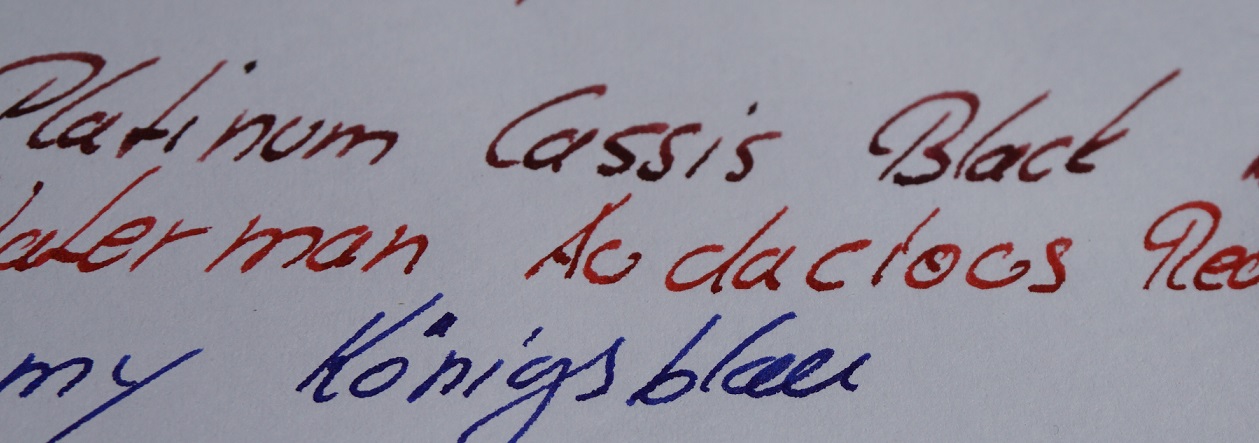 Platinum Cassis Black
aterman Audacious Red
my Königsblau